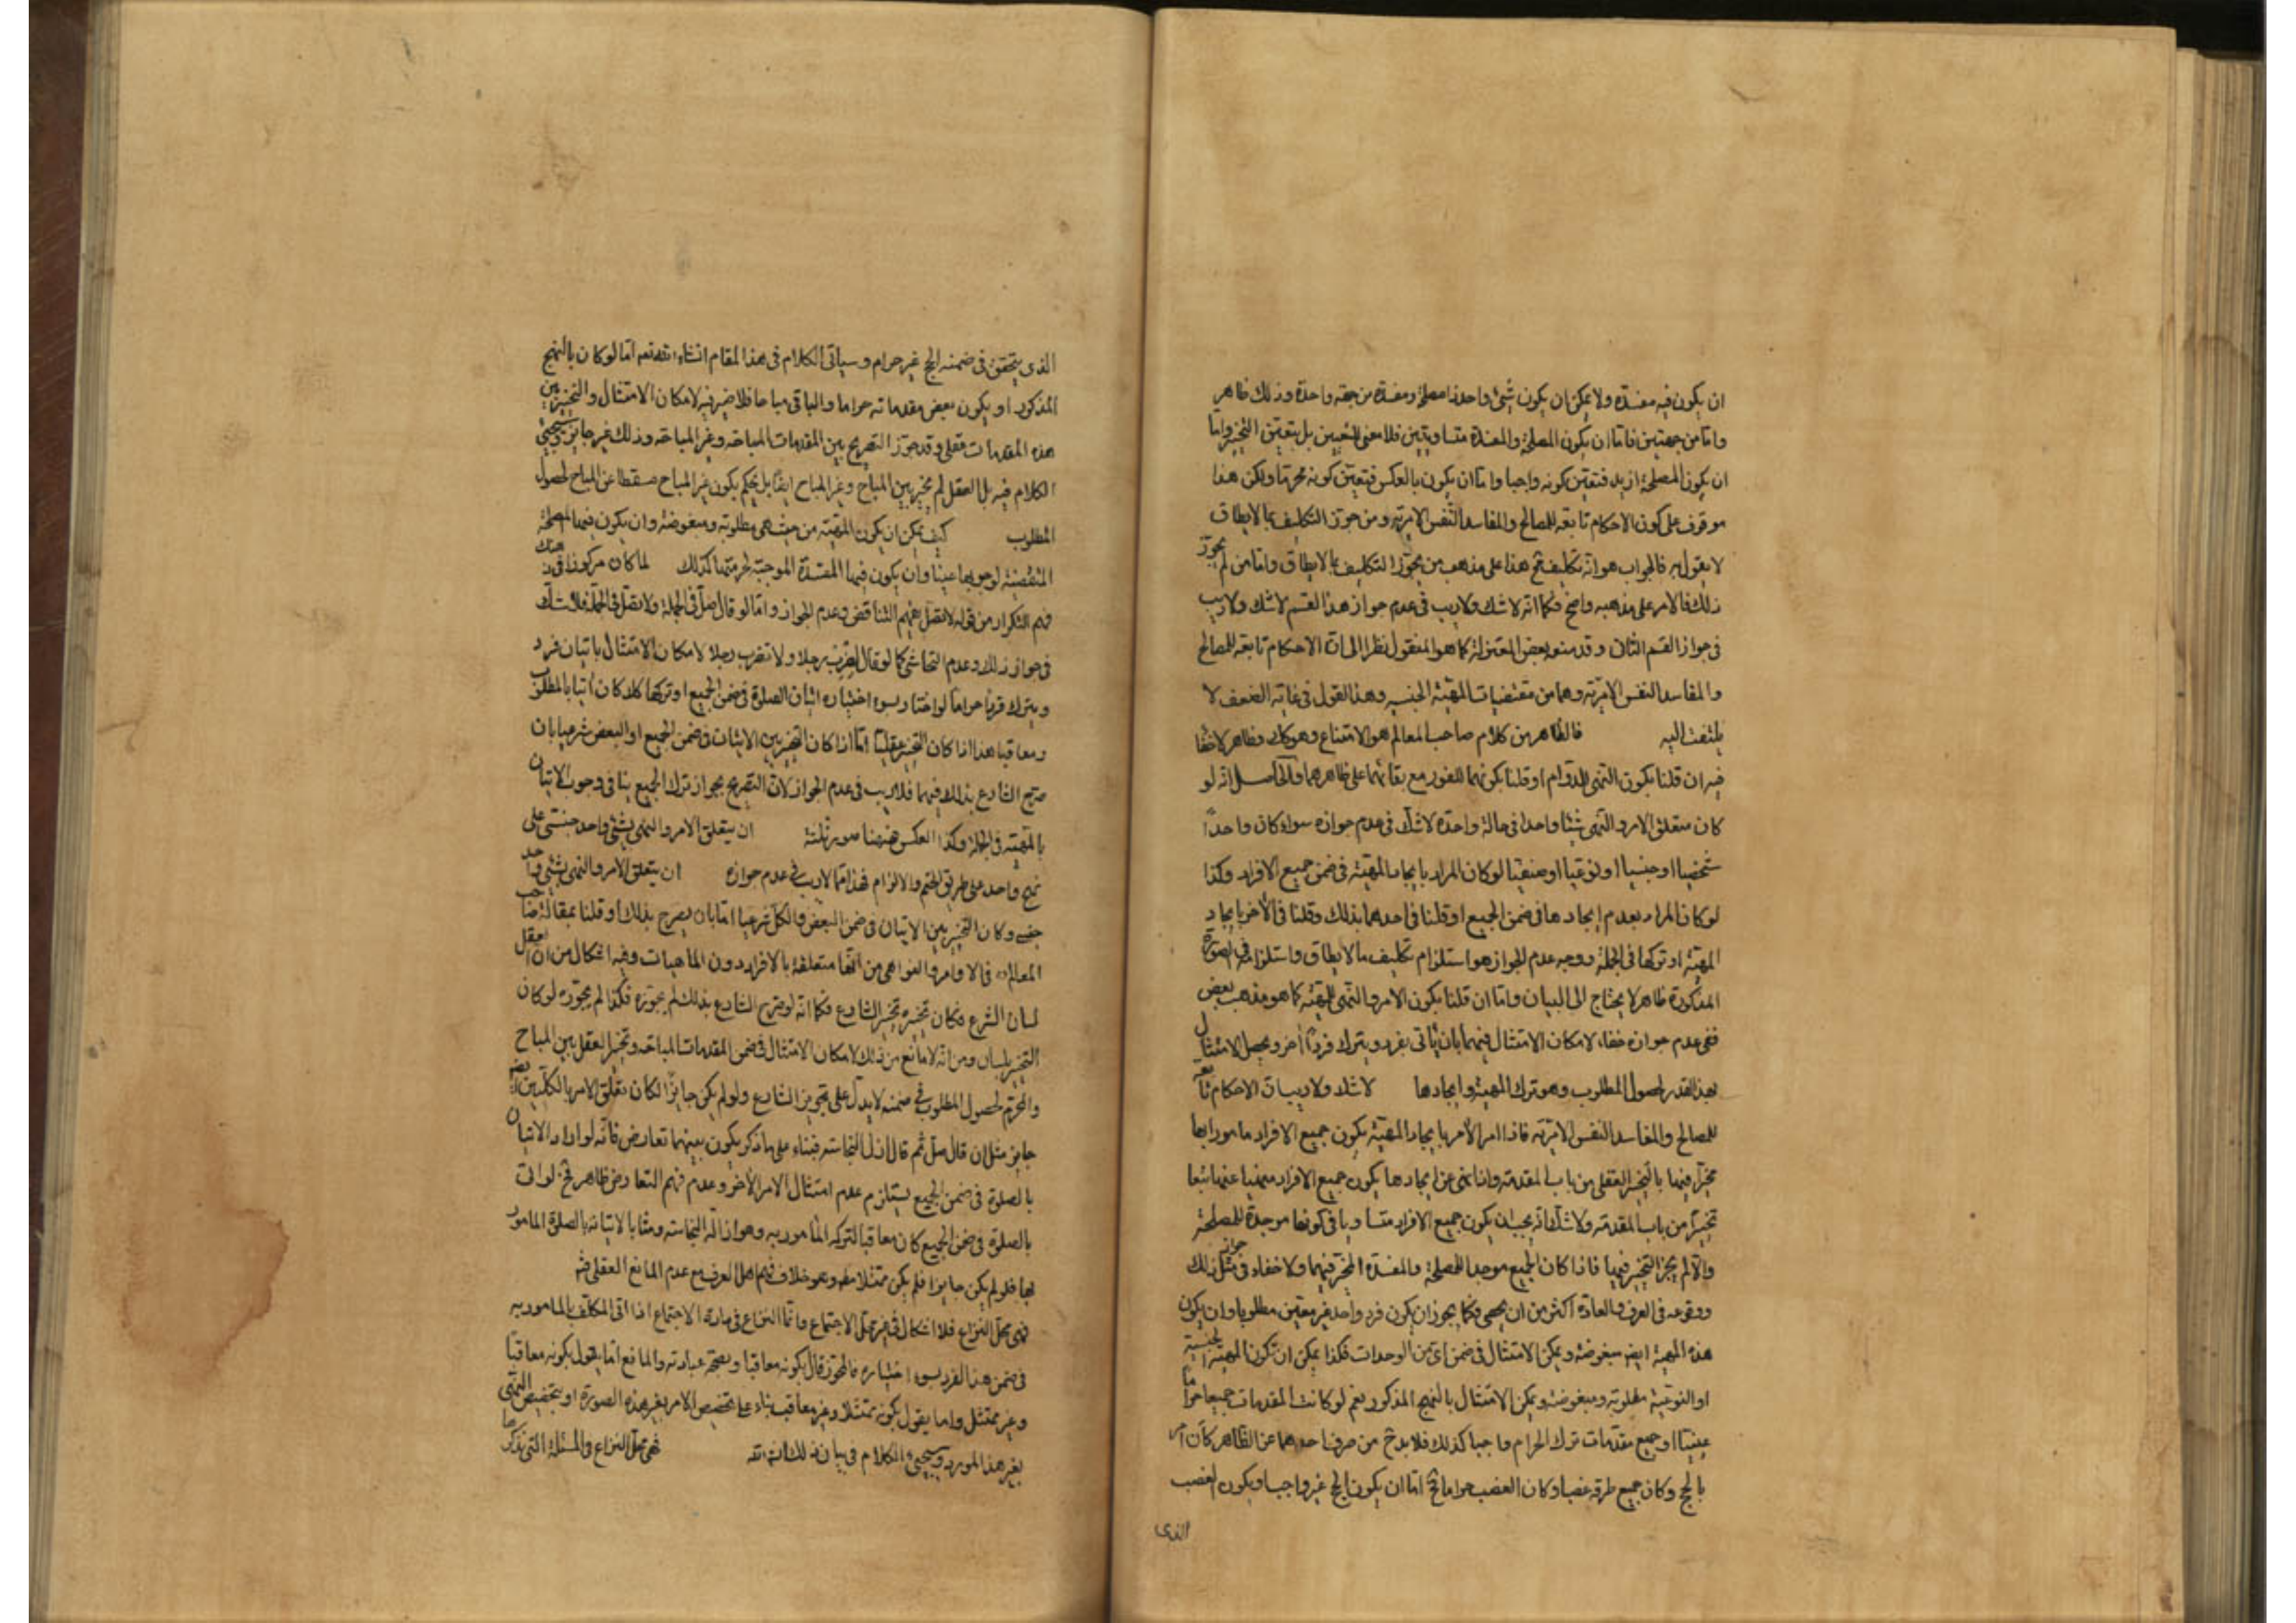 ان يكون فيه مفسدة ولا يمكن ان يكون شئ واحد ذا مصلحة ومفسدة من جهة واحدة وذلك ظاهر
واما من جهتين فاما ان يكون المصلحة والمفسدة متساويتين فلا معنى للتعيين بل يتعين التخيير واما
ان يكون المصلحة ازيد فتعين كونه واجبا واما ان يكون بالعكس فتعين كونه محرما ولكن هذا
موقوف على كون الاحكام تابعة للمصالح والمفاسد النفس الامرية ومن جوز التكليف بما لا يطاق
لا يقول به فالجواب هو انه تكليف مح هذا على مذهب من يجوز التكليف بما لا يطاق واما من لم يجوز
ذلك فالامر على مذهبه واضح فكما انه لا شك ولا ريب في عدم جواز هذا القسم لا شك ولا ريب
في جواز القسم الثانى وقد منعه بعض المعتزلة كما هو المنقول نظرا الى ان الاحكام تابعة للمصالح
والمفاسد النفس الامرية وهما من مقتضيات المهية الجنسية وهذا القول في غاية الضعف لا
يلتفت اليه فالظاهر من كلام صاحب المعالم هو الامتناع وهو كك وظاهر لا خفا
فيه ان قلنا بكون النهى للدوام او قلنا بكونهما للفور مع بقائهما على ظاهرهما والحاصل انه لو
كان متعلق الامر والنهى شيئا واحدا في حالة واحدة لا شك في عدم جوازه سواء كان واحدا
شخصيا او جنسيا او نوعيا او صنفيا لو كان المراد بايجاد المهية في ضمن جميع الافراد وكذا
لو كان المراد بعدم ايجادها في ضمن الجميع او قلنا في احدهما بذلك وقلنا في الاخر بايجاد
المهية او تركها في الجملة ووجه عدم الجواز هو استلزام تكليف ما لا يطاق واستلزامه في الصورة
المذكورة ظاهر لا يحتاج الى البيان واما ان قلنا بكون الامر والنهى للمهية كما هو مذهب بعض
ففى عدم جوازه خفاء لامكان الامتثال فيهما بان يأتى بفرد ويترك فردا اخر ويحصل الامتثال
بهذا القدر لحصول المطلوب وهو ترك المهية وايجادها لا شك ولا ريب ان الاحكام تابعة
للمصالح والمفاسد النفس الامرية فاذا امر الآمر بايجاد المهية يكون جميع الافراد مامورا بها
مخيرا فيها بالتخيير العقلى من باب المقدمة واذا نهى عن ايجادها يكون جميع الافراد منهيا عنها تبعا
تخييرا من باب المقدمة ولا شك انه يجب ان يكون جميع الافراد متساويا في كونها موجدة للمصلحة
والا لم يجز التخيير فيها فاذا كان الجميع موجدا للمصلحة والمفسدة المخير فيهما ولا خفاء في جواز مثل ذلك
ووقوعه في العرف والعادة اكثر من ان يحصى فكما يجوز ان يكون فرد واحد غير معين مطلوبا وان يكون
هذه المهية ايض مبغوضة ويمكن الامتثال في ضمن اى من الوحدات فكذا يمكن ان تكون المهية الجنسية
او النوعية مطلوبة ومبغوضة ويمكن الامتثال بالنهج المذكور نعم لو كانت المقدمات جميعا حراما
عينيا او جميع مقدمات ترك الحرام واجبا كذلك فلا بد ح من صرف احدهما عن الظاهر كأن امر
بالحج وكان جميع طرقه غصبا وكان الغصب حراما فح اما ان يكون الحج غير واجب او يكون الغصب
الذى
الذى يتحقق في ضمنه الحج غير حرام وسياتى الكلام في هذا المقام انشاء الله تعه اما لو كان بالنهج
المذكور او يكون بعض مقدماته حراما والباقى مباحا فلا ضير فيه لامكان الامتثال والتخيير بين
هذه المقدمات عقلى وقد جوز التصريح بين المقدمات المباحة وغير المباحة وذلك غير جايز وسيجيئ
الكلام فيه بل العقل لم يخير بين المباح وغير المباح ايضا بل يحكم بكون غير المباح مسقطا عن المباح لحصول
المطلوب كيف يمكن ان يكون المهية من حيث هى مطلوبة ومبغوضة وان يكون فيها المصلحة
المقتضية لوجوبها عينا وان يكون فيها المفسدة الموجبة لحرمتها كذلك لما كان مركوزا في
فهم التكرار من قوله لا تصل فهم التناقض وعدم الجواز واما لو قال صل في الجملة ولا تصل في الجملة فلا شك
في جواز ذلك وعدم التحاشى كما لو قال اضرب رجلا ولا تضرب رجلا لامكان الامتثال باتيان فرد
ويترك فردا حراما لو اختار بسوء اختياره اتيان الصلوة في ضمن الجميع او تركها كلا كان اتيا بالمطلوب
ومعاقبا هذا اذا كان التخيير عقليا اما اذا كان التخيير بين الاتيان في ضمن الجميع او البعض شرعيا بان
صرح الشارع بذلك فيهما فلا ريب في عدم الجواز لان التصريح بجواز ترك الجميع ينافى وجوب الاتيان
بالمهية في الجملة وكذا العكس فههنا صور ثلثة ان يتعلق الامر والنهى بشئ واحد جنسى على
نهج واحد على طريق الحتم والالزام فهذا مما لا ريب في عدم جوازه ان يتعلق الامر والنهى بشئ واحد
جنسى وكان التخيير بين الاتيان في ضمن البعض والكل شرعيا اما بان يصرح بذلك او قلنا بمقالة صاحب
المعالم في الاوامر والنواهى من انها متعلقة بالافراد دون الماهيات وفيه اشكال من ان العقل
لسان الشرع فكان تخييره تخيير الشارع فكما انه لو صرح الشارع بذلك لم يجوزه فكذا لم يجوزه لو كان
التخيير بلسانه ومن انه لا مانع من ذلك لامكان الامتثال في ضمن المقدمات المباحة وتخيير العقل بين المباح
والمحرم لحصول المطلوب في ضمنه لا يدل على تجويز الشارع ولو لم يكن جايزا لكان تعلق الامر بالكليين ايضا غير
جايز مثل ان قال صل ثم قال ازل النجاسة فبناء على ما ذكر يكون بينهما تعارض فانه لو اراد الاتيان
بالصلوة في ضمن الجميع يستلزم عدم امتثال الامر الاخر وعدم فهم التعارض ظاهر فح لو اتى
بالصلوة في ضمن الجميع كان معاقبا لتركه المأمور به وهو ازالة النجاسة ومثابا لاتيانه بالصلوة المامور
بها فلو لم يكن جايزا فلم يكن ممتثلا مط وهو خلاف فهم اهل العرف مع عدم المانع العقلى فثم
فهى محل النزاع فلا اشكال في غير محل الاجتماع وانما النزاع في مادة الاجتماع اذا اتى المكلف بالمامور به
في ضمن هذا الفرد بسوء اختياره فالمجوز قال بكونه معاقبا وبصحة عبادته والمانع اما يقول بكونه معاقبا
وغير ممتثل واما يقول بكونه ممتثلا وغير معاقب بناء على تخصيص الامر بغير هذه الصورة او بتخصيص النهى
بغير هذا المورد وسيجيئ الكلام في بيان ذلك انشاء الله فهى محل النزاع في المسئلة التى نذكرها